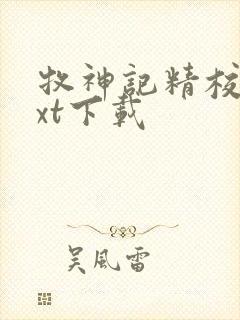 牧神記精校
xt下載
吴風雷